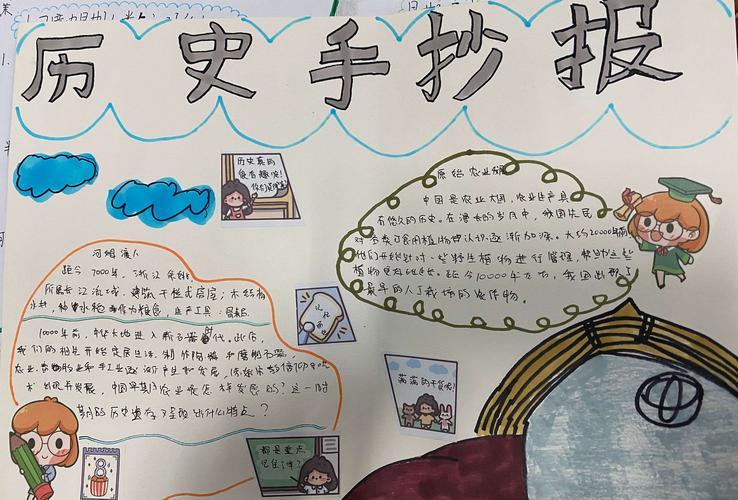 历史手抄报
历史真的
很有趣呀!
原始农业
中国是农业大国,农业生产具
有悠久的历史。在漫长的岁月中,我国先民
对各类可食用植物的认识逐渐加深。大约20000年前
他们开始对一些野生植物进行管理,
植物。距今10000年左右,我国出现了
最早的人工栽培的农作物。
河姆渡人
距今7000年,浙江余姚
长江流域,建筑干栏式房屋;木结构
水井,种水稻作为粮食,生产工具:骨耜
10000年前,中华大地进入新石器时代,此后,
我们的祖先开始定居生活,制作陶器和磨制石器,
农业、畜牧业和手工业逐渐产生和发展,
发展,中国早期农业是怎样发展的?这一时
期的历史遗存了呈现出什么特点?
记起来
满满的干货呢!
都是重点
记住了吗?